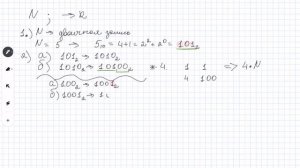 N ; → R
1.) N → двоичная запись
N = 5 → 5₁₀ = 4+1 = 2² + 2⁰ = 101₂
2) а) 101₂ → 1010₂
б) 1010₂ → 10100₂ * 4 1 1 => 4*N
4 100
а) 100₂ → 1001₂
б) 1001₂ → 1